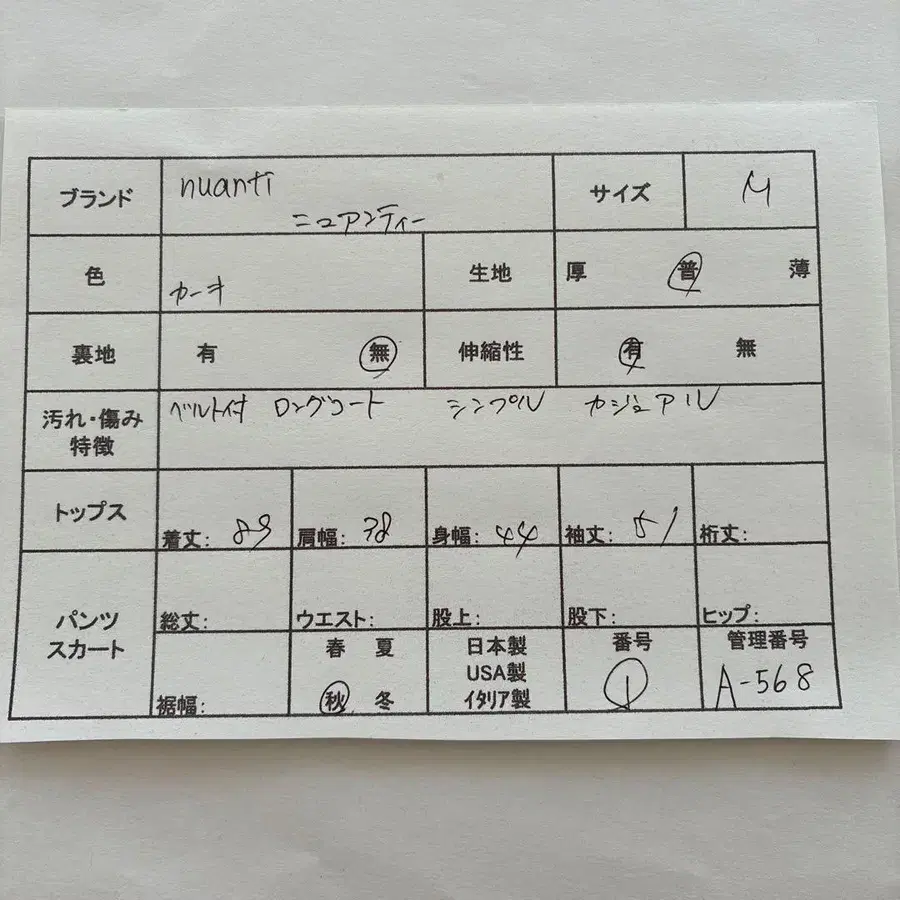 ブランド nuanti サイズ M
ニュアンティー
色 カーキ 生地 厚 普 薄
裏地 有 無 伸縮性 有 無
汚れ・傷み ベルト付 ロングコート シンプル カジュアル
特徴
トップス 着丈: 89 肩幅: 38 身幅: 44 袖丈: 51 裄丈:
パンツ スカート 総丈: ウエスト: 股上: 股下: ヒップ:
裾幅: 春 夏 日本製 番号 管理番号
USA製
秋 冬 イタリア製 1 A-568